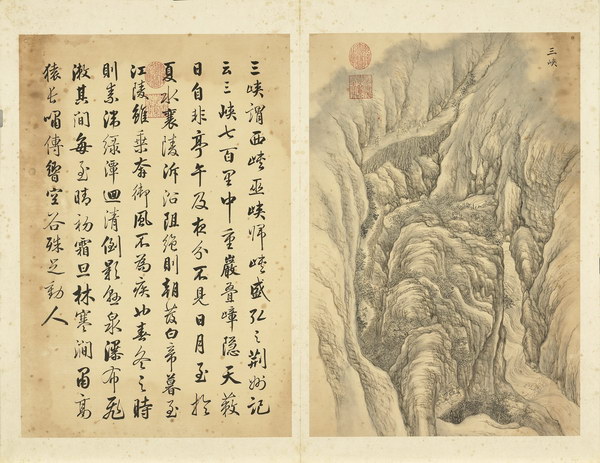 三峽
三峽謂西峽巫峽歸峽盛弘之荊州記
云三峽七百里中重巖疊嶂隱天蔽
日自非亭午及夜分不見日月至於
夏水襄陵泝沿阻絕則朝發白帝暮至
江陵雖乘奔御風不為疾也春冬之時
則素湍綠潭迴清倒影懸泉瀑布飛
漱其間每至晴初霜旦林寒澗肅高
猿長嘯傳響空谷殊足動人